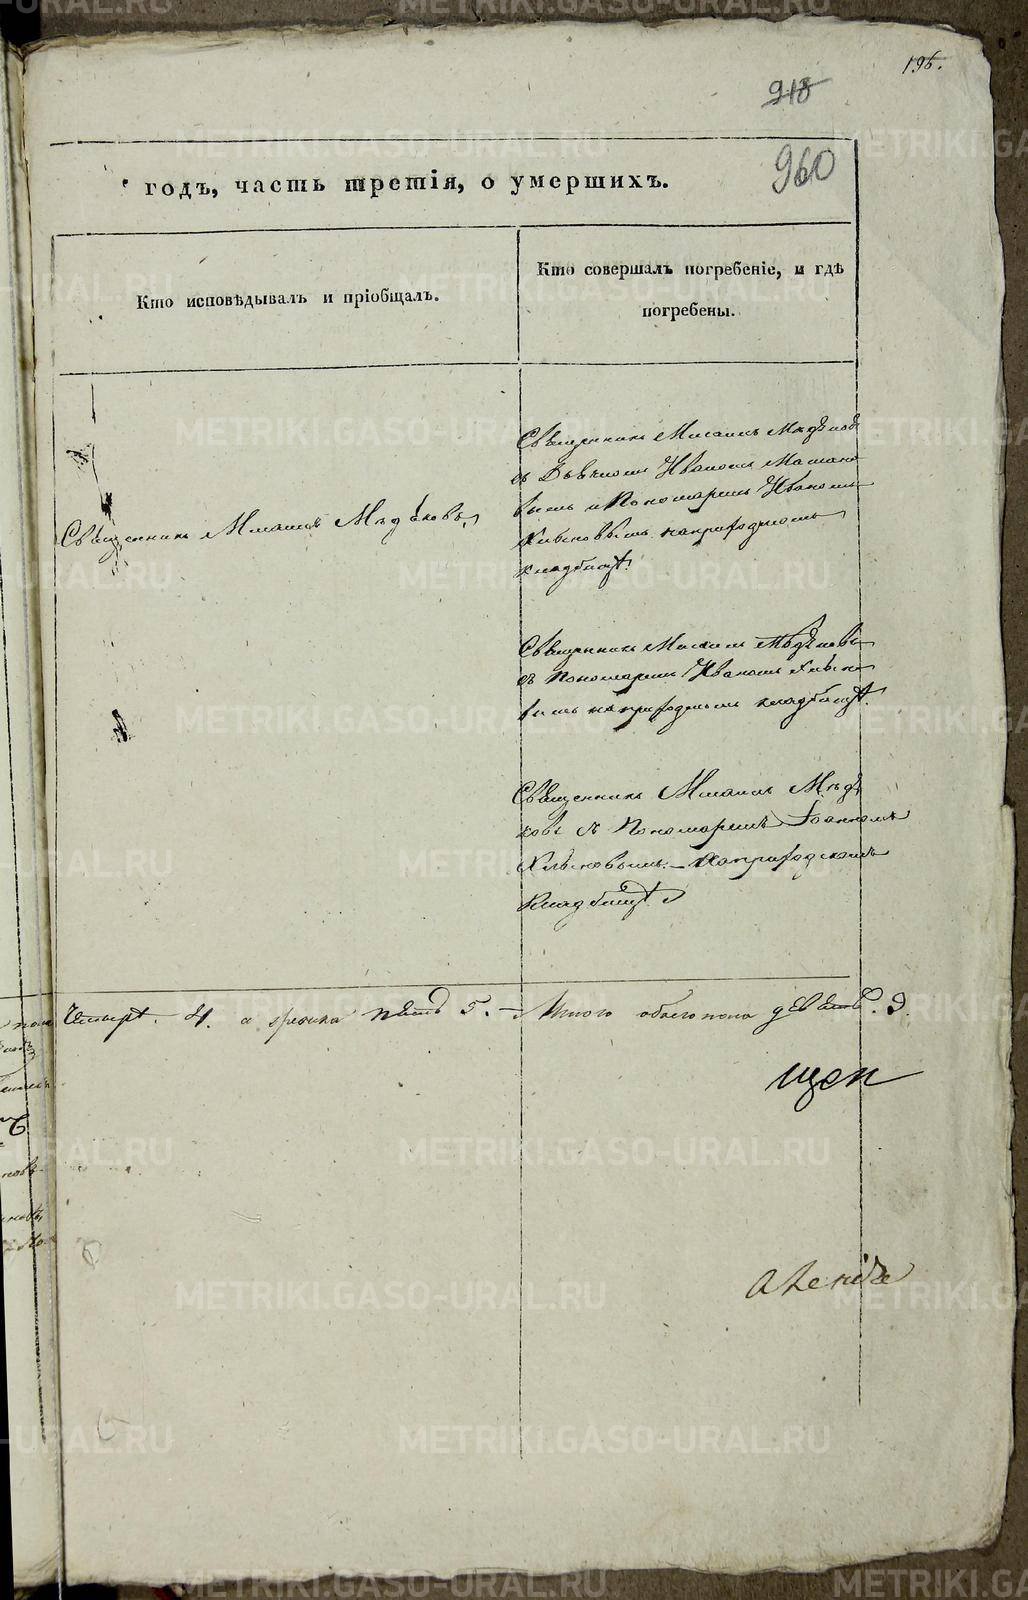 196.
918
960
годъ, часть третія, о умершихъ.
Кто исповѣдывалъ и пріобщалъ.
Кто совершалъ погребеніе, и гдѣ
погребены.
Священникъ Мисаилъ Мѣдѣковъ,
Священникъ Мисаилъ
съ Иваномъ
вымъ и Пономаремъ Иваномъ
Хлыновымъ на приходскомъ
кладбищѣ.
Священникъ Мисаилъ
съ Пономаремъ Иваномъ Хлыно
вымъ на приходскомъ кладбищѣ.
Священникъ Мисаилъ Мѣдѣ
ковъ съ Пономаремъ Іоанномъ
Хлыновымъ. на приходскомъ
кладбищѣ
четыре. 4. а пять 5. – Итого обоего пола девять. 9.
METRIKI.GASO-URAL.RU